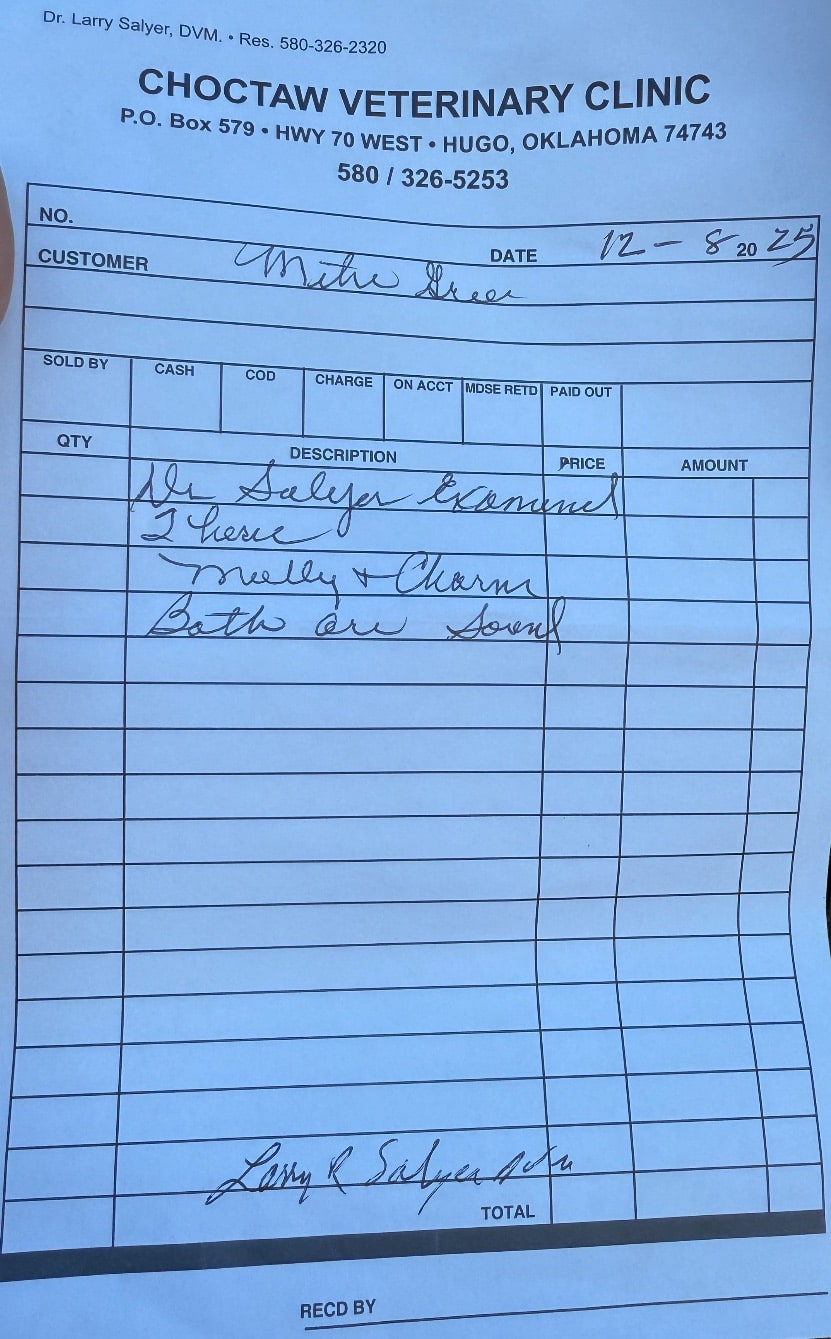 Dr. Larry Salyer, DVM. • Res. 580-326-2320
CHOCTAW VETERINARY CLINIC
P.O. Box 579 • HWY 70 WEST • HUGO, OKLAHOMA 74743
580 / 326-5253
NO.
DATE 12 - 8 20 25
CUSTOMER Mike Greer
SOLD BY CASH COD CHARGE ON ACCT MDSE RETD PAID OUT
QTY DESCRIPTION PRICE AMOUNT
Dr Salyer Examined
2
Molly + Charm
Both are Sound
Larry R Salyer DVM
TOTAL
RECD BY